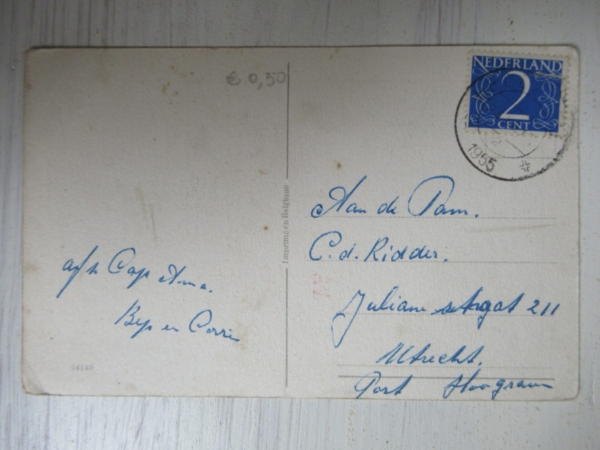 € 0,50
NEDERLAND
2
CENT
1955
Aan de Fam.
C. d. Ridder.
Juliana straat 211
Utrecht.
Post Hoograven
Imprimé en Belgique
afz Cap
Bep en Corrie